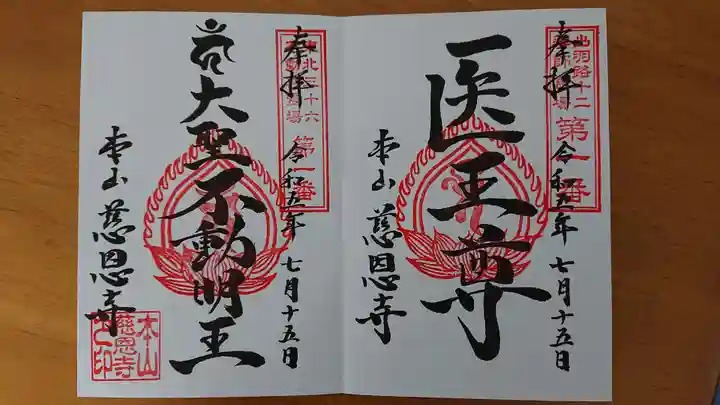 奉拝
出羽路十二
薬師霊場
第一番
令和五年 七月十五日
医王尊
本山 慈恩寺
奉拝
東北三十六
不動尊霊場
第一番
令和五年 七月十五日
大聖不動明王
本山 慈恩寺
本山
慈恩寺
之印